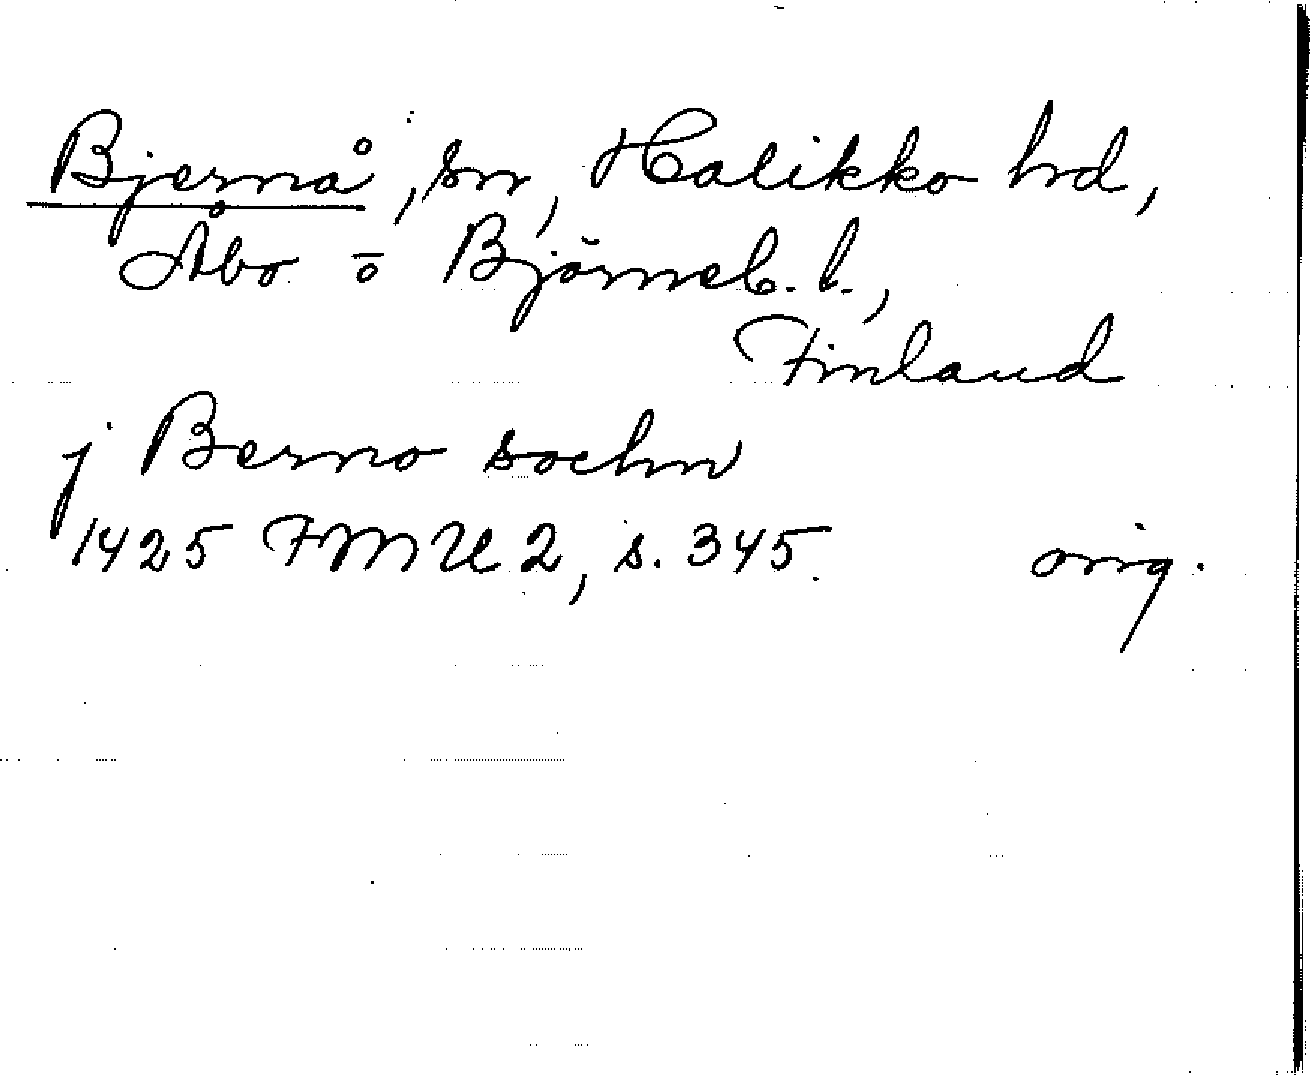 Bjernå, sn, Halikko hd,
Åbo o Björneb. l.,
Finland
j Berno sochn
1425 FMU 2, s. 345. orig.